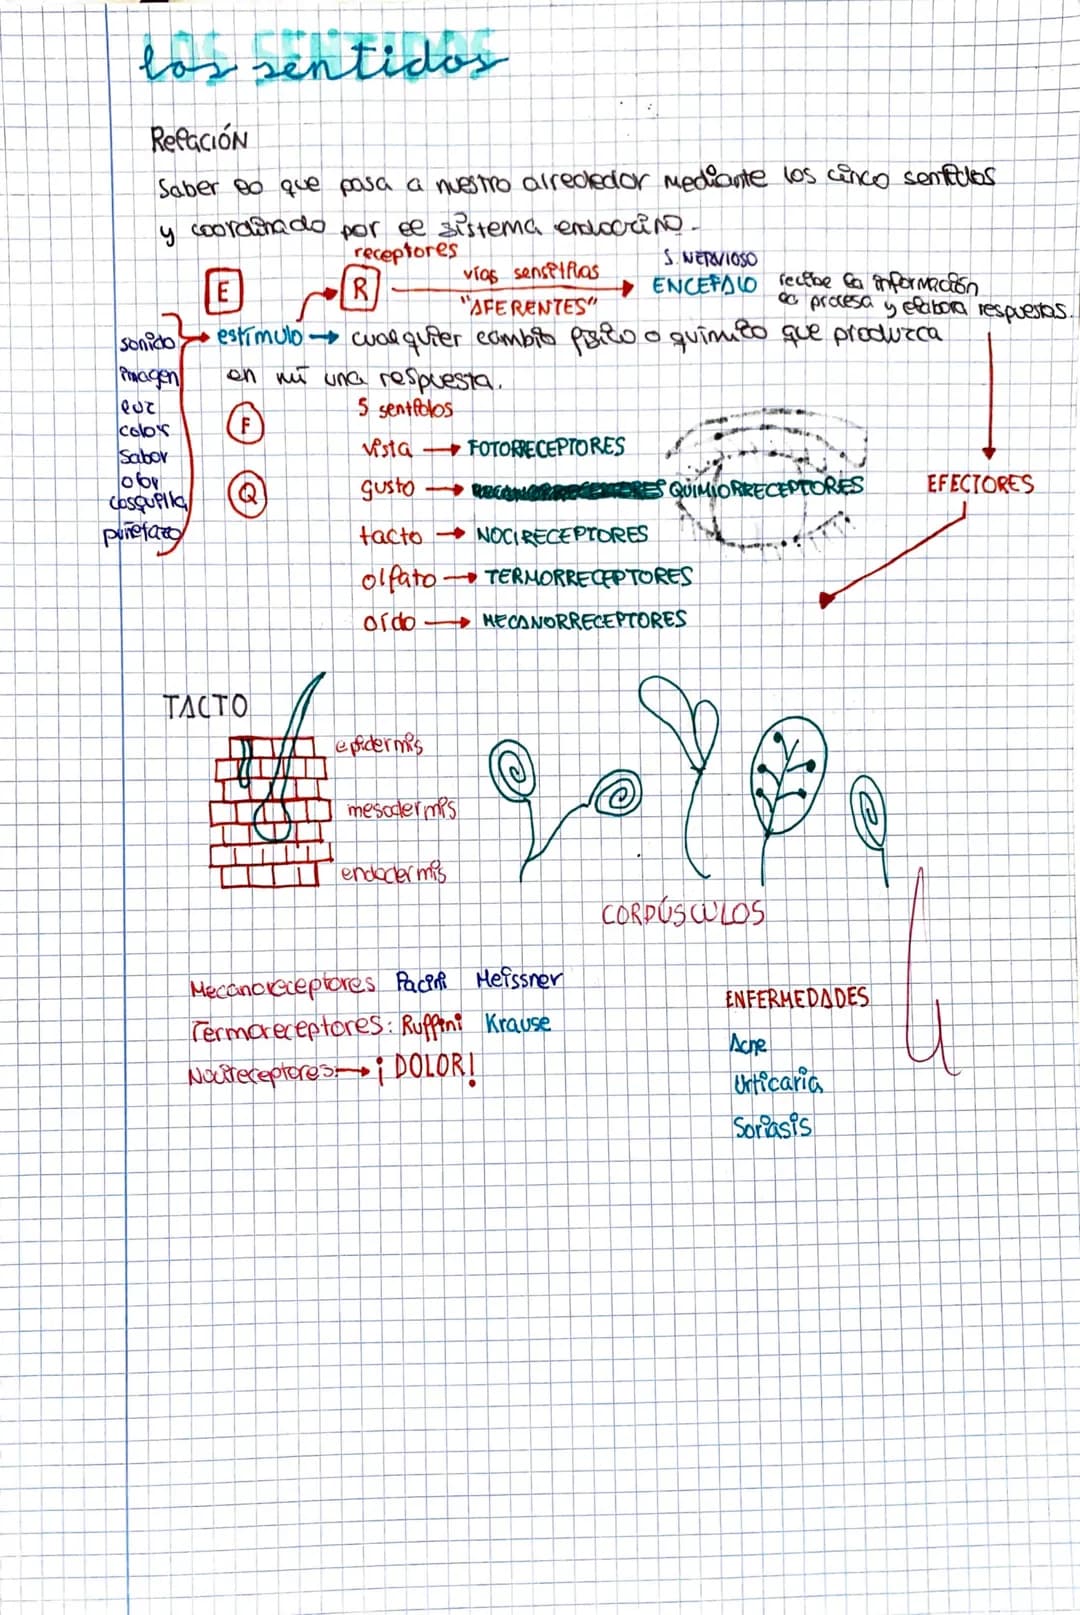 LOS SENTIDOS
los sentidos
Relación
Saber lo que pasa a nuestro alrededor mediante los cinco sentidos
y coordinado por el sistema endocrino.
receptores
S. NERVIOSO
E
R
vías sensitivas
"AFERENTES"
ENCEFALO
recibe la información
la procesa y elabora respuestas.
sonido
imagen
luz
color
sabor
olor
cosquilla
puñetazo
estímulo → cualquier cambio físico o químico que produzca
en mí una respuesta.
F
Q
5 sentidos
vista → FOTORRECEPTORES
gusto → QUIMIORRECEPTORES
tacto → NOCIRECEPTORES
olfato → TERMORRECEPTORES
oído → MECANORRECEPTORES
EFECTORES
TACTO
epidermis
mesodermis
endodermis
CORPÚSCULOS
Mecanoreceptores Pacini Meissner
Termoreceptores: Ruffini Krause
Nocireceptores: → ¡DOLOR!
ENFERMEDADES
Acne
Urticaria
Soriasis